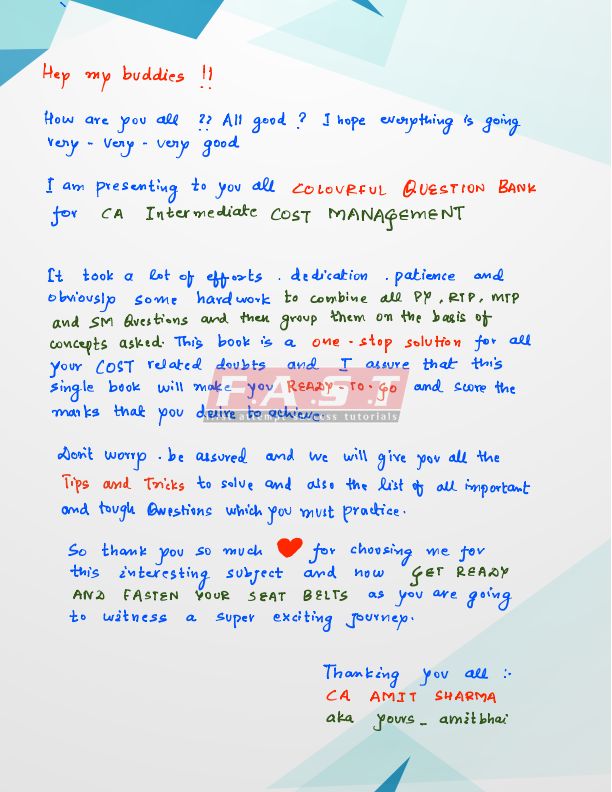 Hey my buddies !!
How are you all ?? All good ? I hope everything is going
very - very - very good
I am presenting to you all COLOURFUL QUESTION BANK
for CA Intermediate COST MANAGEMENT
It took a lot of efforts . dedication . patience and
obviously some hardwork to combine all PY, RTP, MTP
and SM Questions and then group them on the basis of
concepts asked. This book is a one - stop solution for all
your COST related doubts and I assure that this
single book will make you READY - TO - GO and score the
marks that you desire to achieve.
F.A.S.T
first attempt success tutorials
Don't worry . be assured and we will give you all the
Tips and Tricks to solve and also the list of all important
and tough Questions which you must practice.
So thank you so much ❤ for choosing me for
this interesting subject and now GET READY
AND FASTEN YOUR SEAT BELTS as you are going
to witness a super exciting journey.
Thanking you all :-
CA AMIT SHARMA
aka yours _ amitbhai